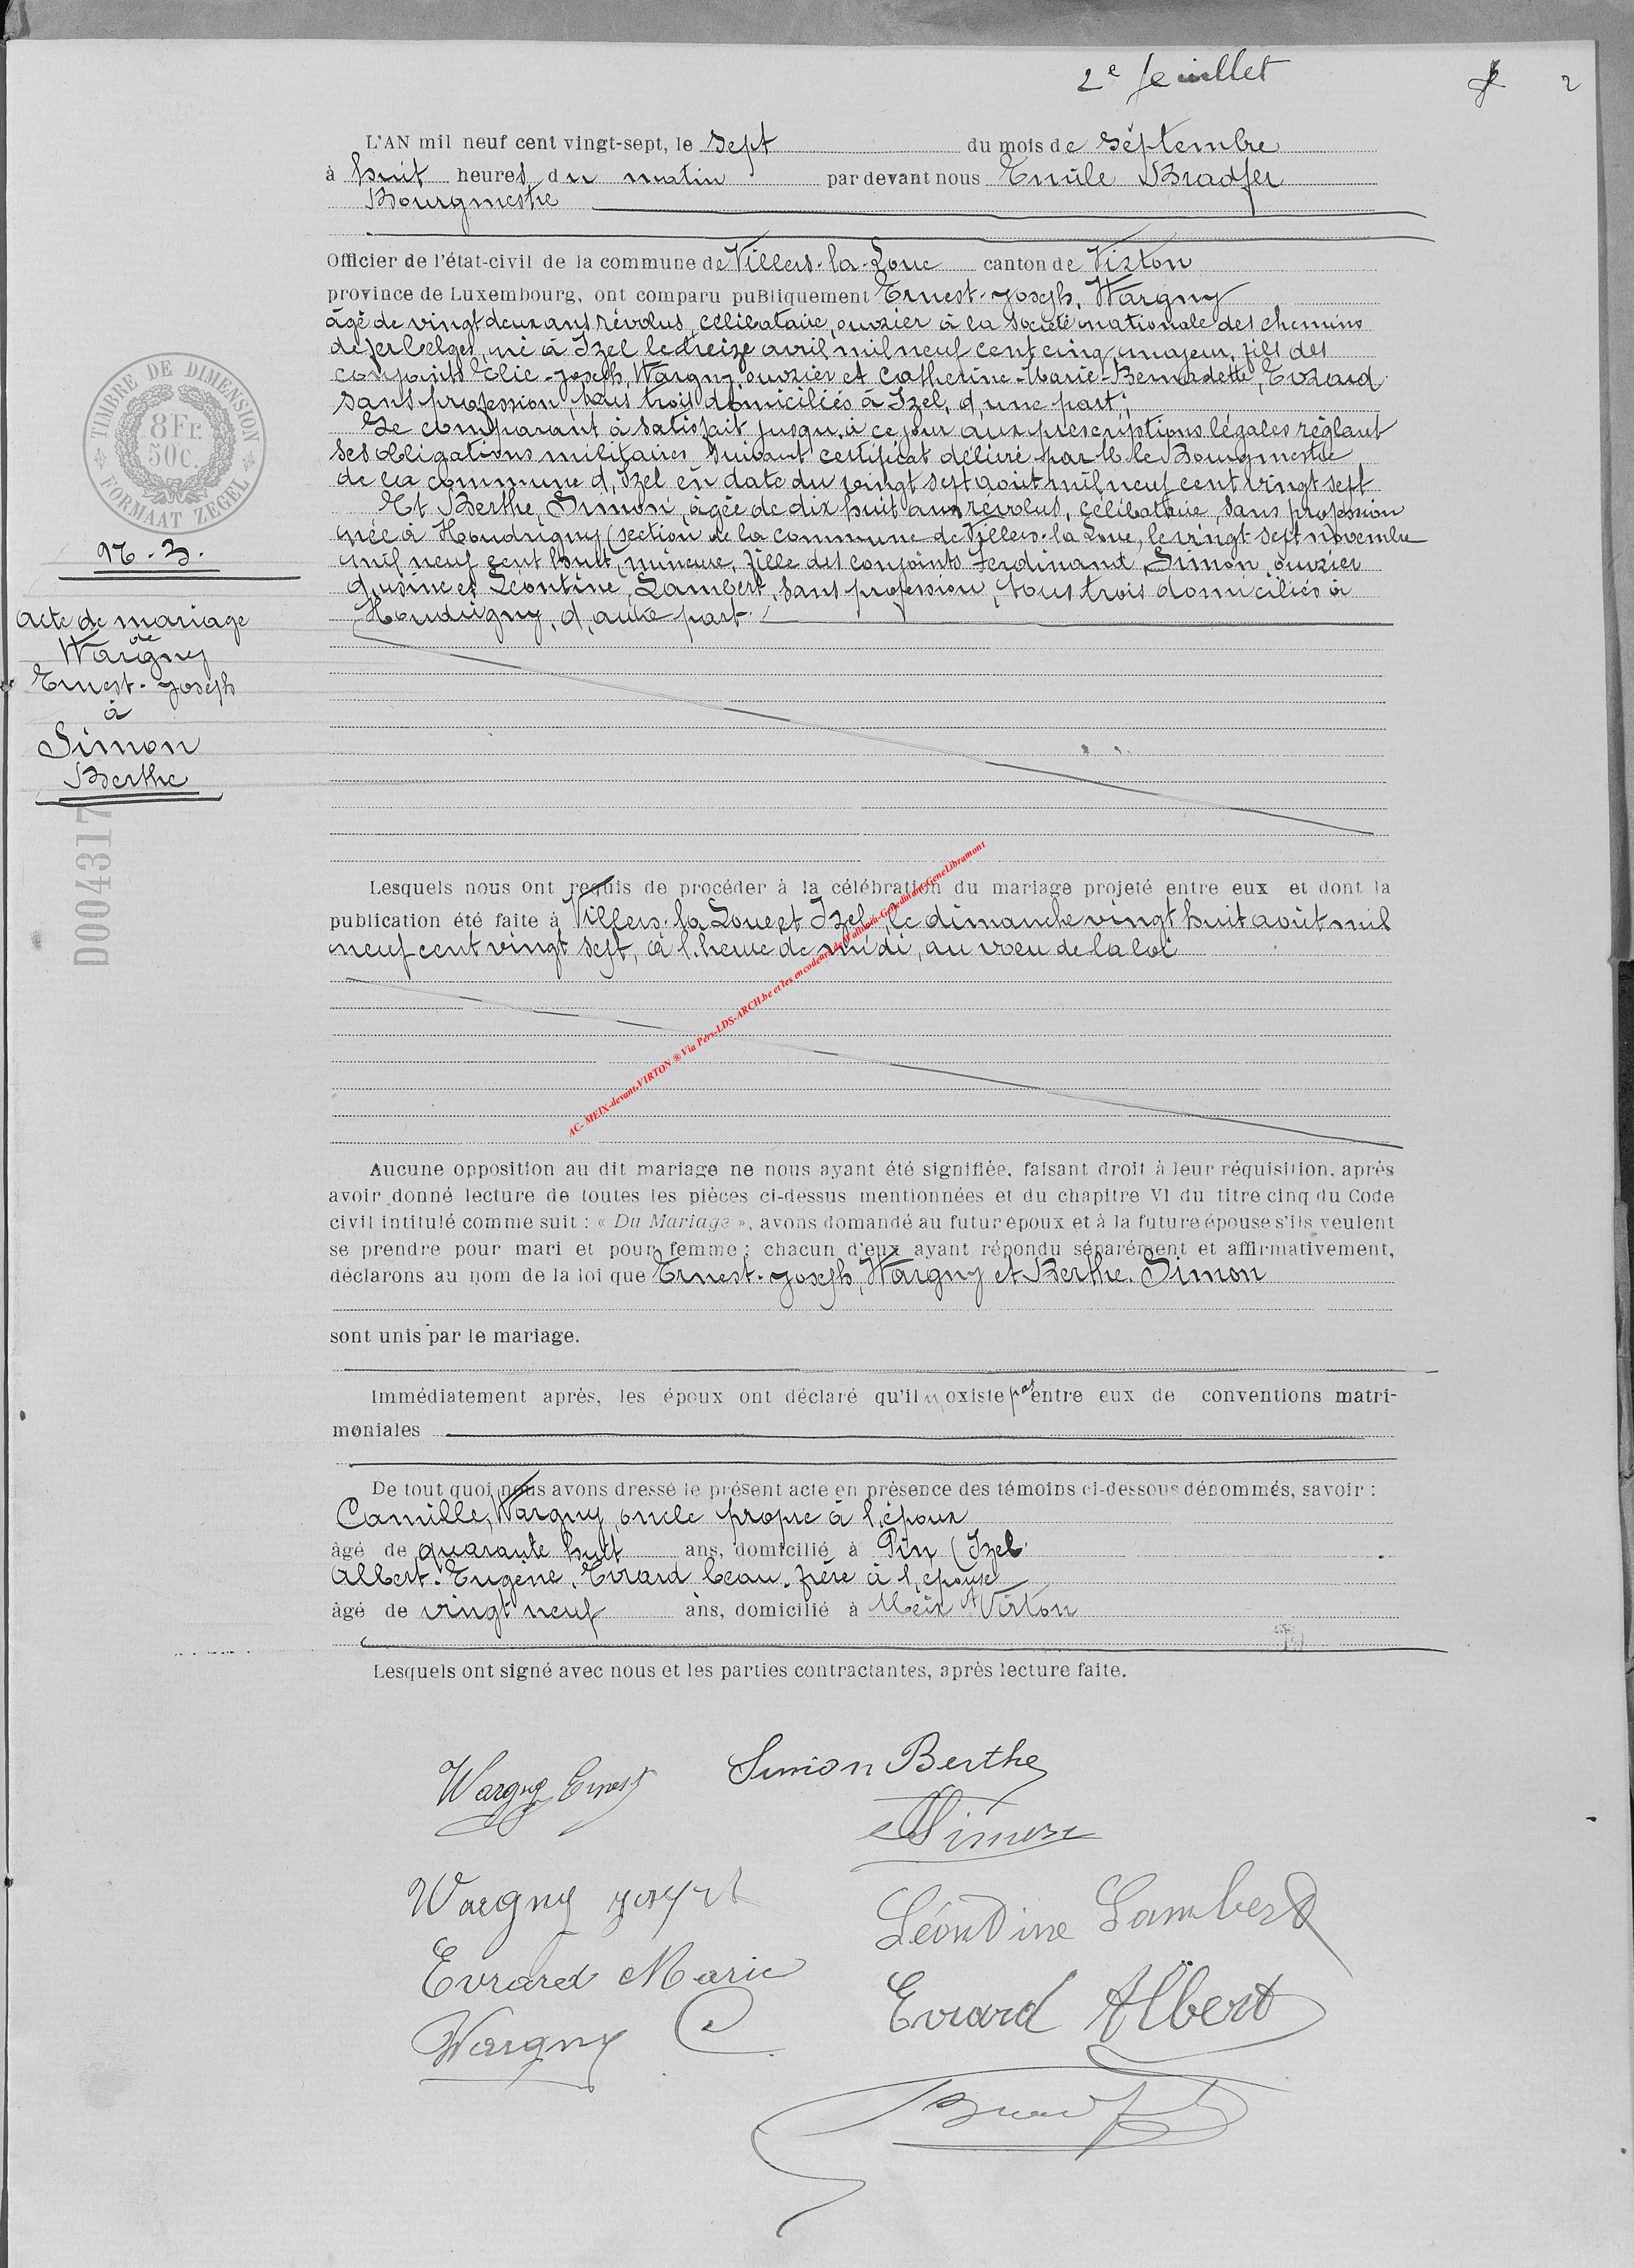 2e feuillet
2
L'AN mil neuf cent vingt-sept, le sept du mois de septembre
à huit heures du matin par devant nous Emile Bradfer
Bourgmestre
Officier de l'état-civil de la commune de Villers-la-Loue canton de Virton
province de Luxembourg, ont comparu puBliquement Ernest-Joseph, Wargny
âgé de vingt deux ans révolus, célibataire, ouvrier à la société nationale des chemins
de fer belges, né à Izel, le treize avril mil neuf cent cinq, majeur, fils des
conjoints Elie-Joseph, Wargny, ouvrier et Catherine-Marie-Bernadette, Evrard
sans profession, tous trois domiciliés à Izel, d'une part;
Le comparant à satisfait jusqu'à ce jour aux prescriptions légales réglant
ses obligations militaires suivant certificat délivré par M le Bourgmestre
de la commune d'Izel en date du vingt sept août mil neuf cent vingt sept
Et Berthe, Simon, âgée de dix huit ans révolus, célibataire, sans profession
née à Houdrigny (section de la commune de Villers-la-Loue, le vingt-sept novembre
mil neuf cent huit, mineure, fille des conjoints Ferdinand, Simon, ouvrier
d'usine et Léontine, Lambert, sans profession, tous trois domiciliés à
Houdrigny, d'autre part.
TIMBRE DE DIMENSION
8 Fr.
50c.
FORMAAT ZEGEL
N. 3.
Acte de mariage
de
Wargny
Ernest-Joseph
à
Simon
Berthe
D004317
Lesquels nous ont requis de procéder à la célébration du mariage projeté entre eux et dont la
publication été faite à Villers-la-Loue et Izel, le dimanche vingt huit août mil
neuf cent vingt sept, à l'heure de midi, au vœu de la loi
AC- MEIX-devant-VIRTON ® Via Pers-LDS-ARCH.be et les encodeurs de Wallonia-Genedinant-GeneLibramont
Aucune opposition au dit mariage ne nous ayant été signifiée, faisant droit à leur réquisition, après
avoir donné lecture de toutes les pièces ci-dessus mentionnées et du chapitre VI du titre cinq du Code
civil intitulé comme suit : « Du Mariage », avons domandé au futur époux et à la future épouse s'ils veulent
se prendre pour mari et pour femme ; chacun d'eux ayant répondu séparément et affirmativement,
déclarons au nom de la loi que Ernest-Joseph, Wargny et Berthe. Simon
sont unis par le mariage.
Immédiatement après, les époux ont déclaré qu'il n'oxiste pas entre eux de conventions matri-
moniales
De tout quoi nous avons dressé le présent acte en présence des témoins ci-dessous dénommés, savoir :
Camille, Wargny, oncle propre à l'époux
âgé de quarante huit ans, domicilié à Pin (Izel
Albert-Eugène, Evrard beau-frère à l'épouse
âgé de vingt neuf ans, domicilié à Meix dt Virton
Lesquels ont signé avec nous et les parties contractantes, après lecture faite.
Wargny Ernest Simon Berthe
Simon
Wargny Joseph
Léontine Lambert
Evrard Marie
Evrard Albert
Wargny C.
Bradfer